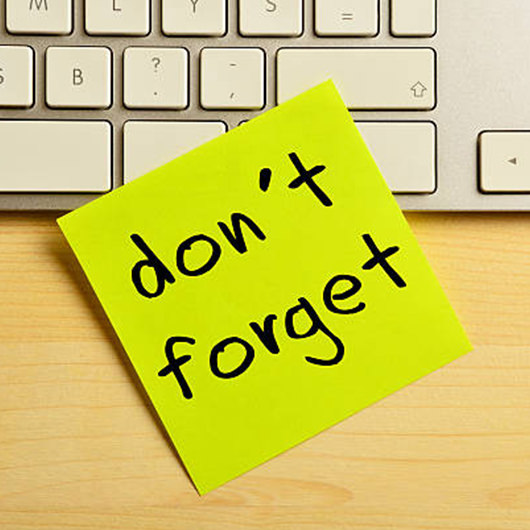 M L Y S =
B ? . - , ⇧
◄
don't
forget